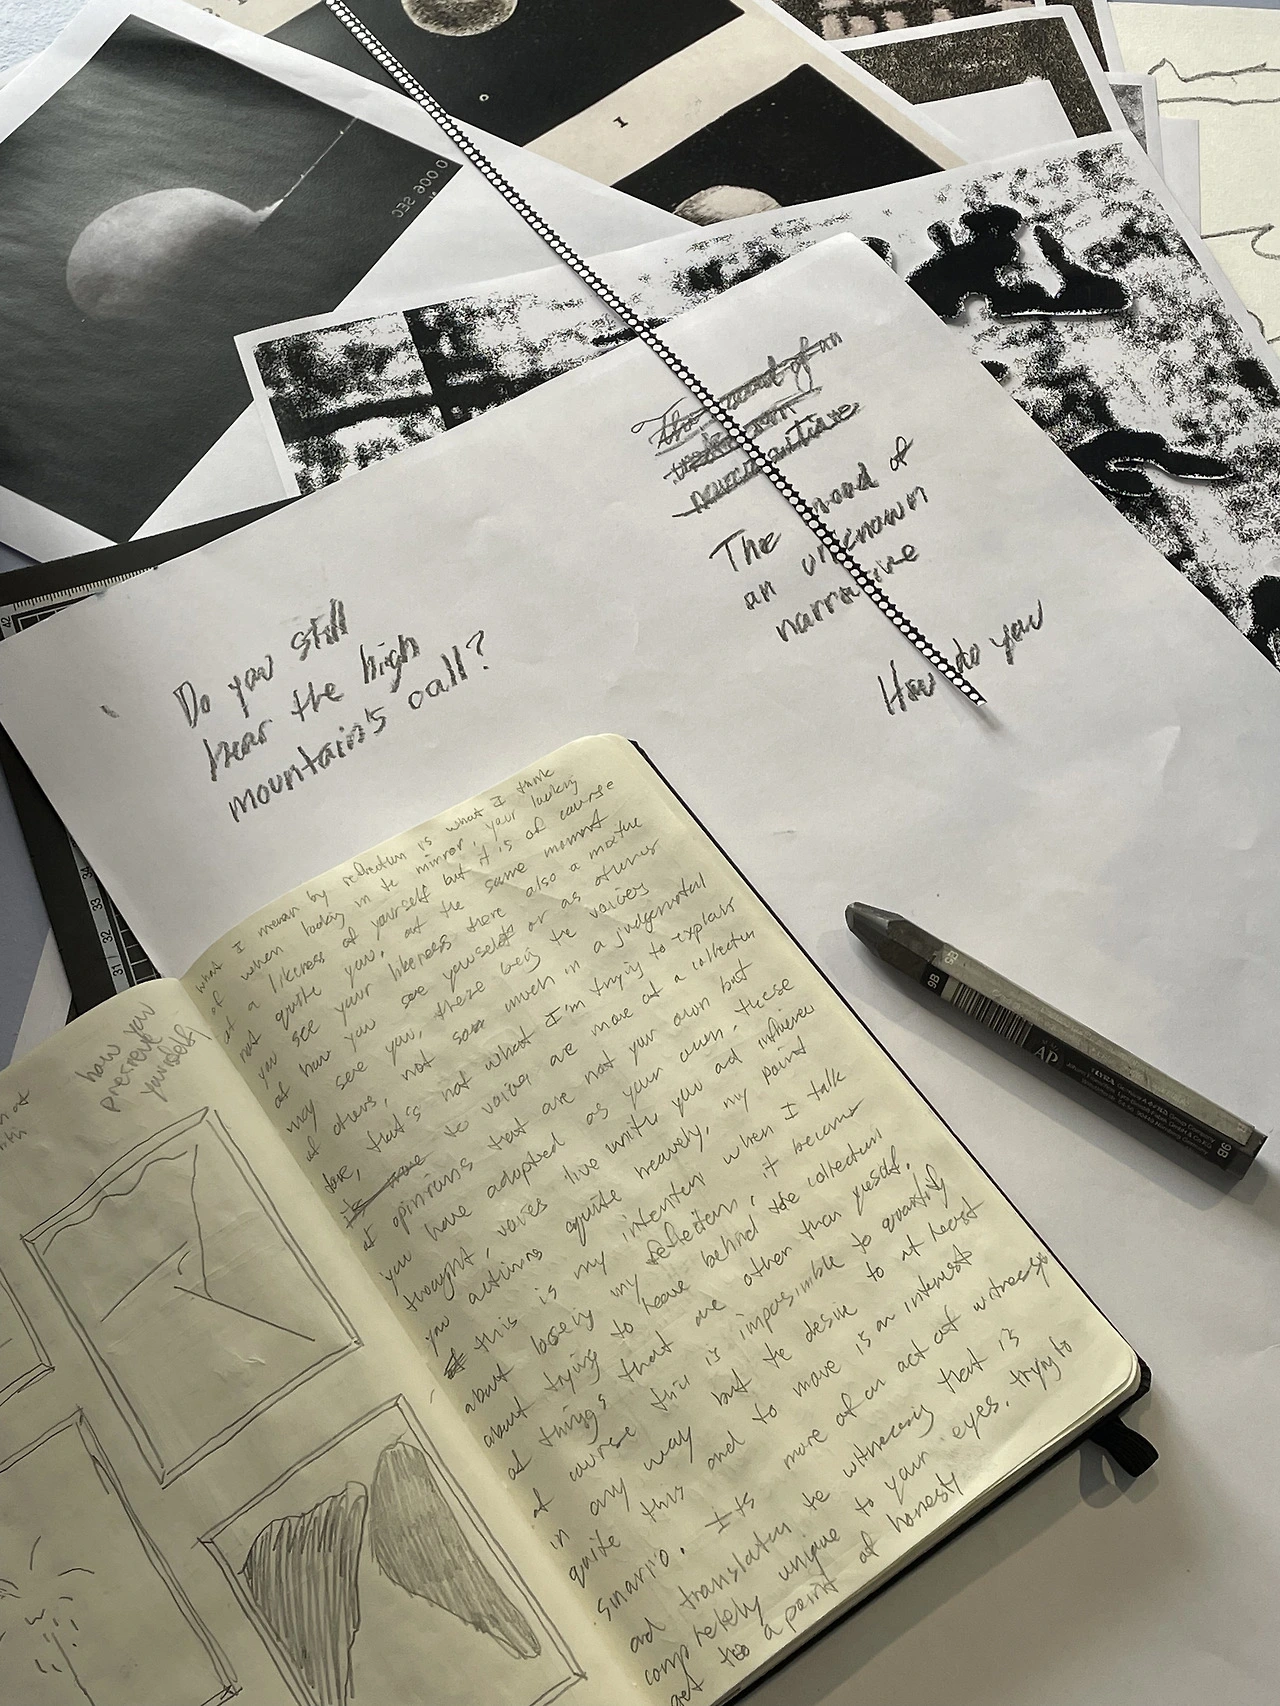 0 006 SEC
1
The mood of an
unknown
narrative
The mood of
an unknown
narrative
How do you
Do you still
hear the high
mountain's call?
42
34
33
32
31
9B
AP
LYRA
9B
how
preserve you
yourself
what I mean by reflection is what I think
of when looking in te mirror, your looking
at a likeness of yourself but it is of course
not quite you, at the same moment
you see your likeness there also a mixture
of how you see yourself or as others
may see you, these being te voices
of others, not so much in a judgemental
tone, that's not what I'm trying to explain
its more to voices are more of a collection
of opinions that are not your own but
you have adopted as your own. these
thought, voices live inside you ad influence
you actions quite heavily, my point
this is my intention when I talk
about losely my reflection, it becomes
about trying to leave behind the collection
of things that are other than yourself.
of course this is impossible to quantify
in any way but te desire to at least
quite this and to move is an interest
sinario. Its more of an act of witness
and translation te witnessing that is
completely unique to your eyes. trying to
get to a point of honesty